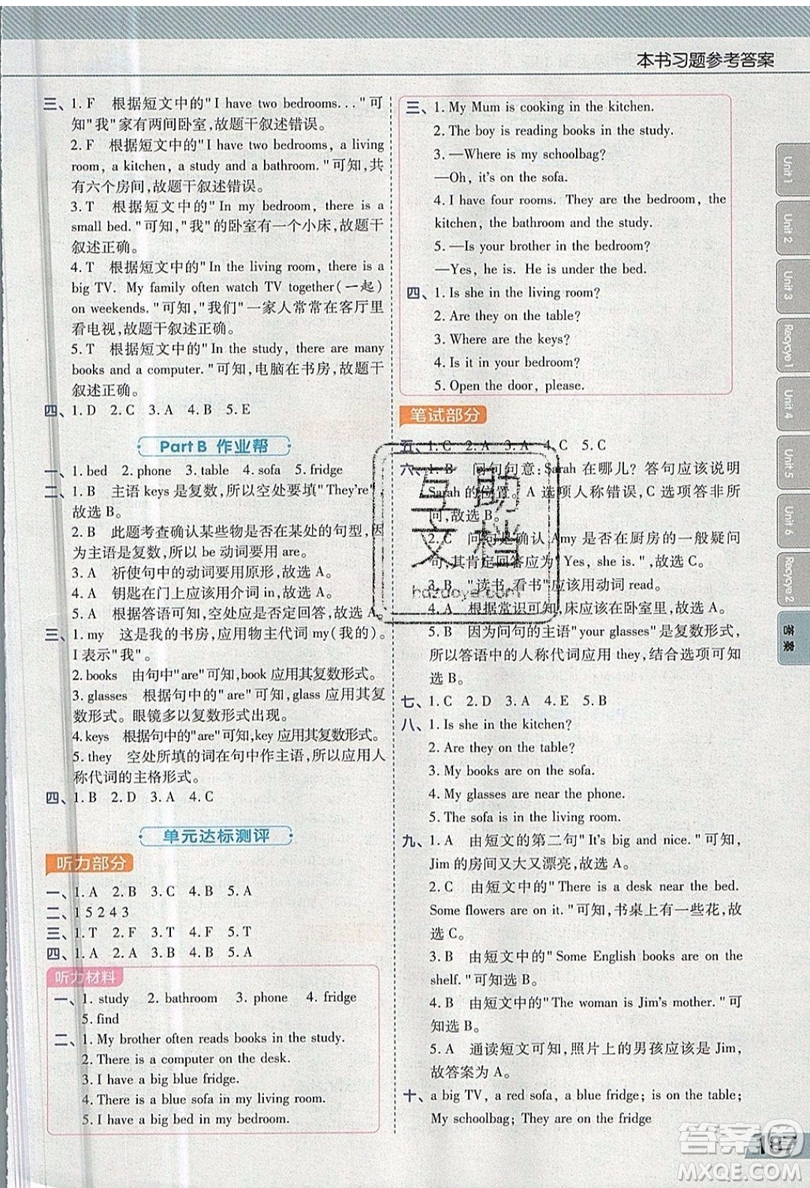 本书习题参考答案
三、1. F 根据短文中的"I have two bedrooms..."可
知"我"家有两间卧室,故题干叙述错误。
2. F 根据短文中的"I have a bedroom, a living
room, a kitchen, a study and a bathroom."可知,共
共有六个房间,故题干叙述错误。
3. T 根据短文中的"In my bedroom, there is a
small bed."可知,"我"的卧室有一个小床,故题干
叙述正确。
4. T 根据短文中的"In the living room, there is a
big TV. My family often watch TV together(一起)
on weekends."可知,"我们"一家人常常在客厅里
看电视,故题干叙述正确。
5. T 根据短文中的"In the study, there are many
books and a computer."可知,电脑在书房,故题干
叙述正确。
四、1. D 2. C 3. A 4. B 5. E
Part B 作业帮
一、1. bed 2. phone 3. table 4. sofa 5. fridge
二、1. B 主语 keys 是复数,所以空处填"They're",
故选 B。
2. B 此题考查确认某些物是否在某处的句型,因
为主语是复数,所以 be 动词要用 are。
3. A 祈使句中的动词要用原形,故选 A。
4. A 钥匙在门上应该用介词 in,故选 A。
5. A 根据答语可知,空处应是否定回答,故选 A。
三、1. my 这是我的书房,应用物主代词 my(我的)。
I 表示"我"。
2. books 由句中"are"可知,book 应用其复数形式。
3. glasses 根据句中的"are"可知,应用其复
数形式。眼镜多以复数形式出现。
4. keys 根据句中的"are"可知,应用其复数形式。
5. they 空处所填的词在句中作主语,所以用
人称代词的主格形式。
四、1. B 2. D 3. A 4. C
单元达标测评
听力部分
一、1. A 2. B 3. C 4. B 5. A
二、1 5 2 4 3
三、1. T 2. F 3. T 4. F 5. T
四、1. A 2. B 3. C 4. B 5. A
听力材料
一、1. study 2. bathroom 3. phone 4. fridge
5. find
二、1. My brother often reads books in the study.
2. There is a computer on the desk.
3. I have a big blue fridge.
4. There is a blue sofa in the living room.
5. I have a big bed in my bedroom.
三、1. My Mum is cooking in the kitchen.
2. The boy is reading books in the study.
3. —Where is my schoolbag?
—Oh, it's on the sofa.
4. I have four rooms. They are the bedroom, the
kitchen, the bathroom and the study.
5. —Is your brother in the bedroom?
—Yes, he is. He is in the bed.
四、1. Is she in the living room?
2. Are they on the table?
3. Where are the keys?
4. Is it in your bedroom?
5. Open the door, please.
笔试部分
五、1. C 2. A 3. A 4. B 5. C
六、1. B 问句句意:Sarah 在哪儿? 答句应该说明
Sarah 的位置。A 选项人称错误,C 选项答非所
问,故选 B。
2. C 问句是确认 Amy 是否在厨房的一般疑问
句,其肯定回答应为"Yes, she is.",故选 C。
3. B "读书,看书"应该用动词 read。
4. A 根据常识可知,床应该在卧室里,故选 A。
5. B 因为问句的主语"your glasses"是复数形式,
所以答语中的人称代词应用 they,结合选项可知选 B。
七、1. C 2. D 3. A 4. E 5. B
八、1. Is she in the kitchen?
2. Are they on the table?
3. My books are on the sofa.
4. My glasses are near the phone.
5. The sofa is in the living room.
九、1. A 由短文的第二句"It's big and nice."可知,
Jim 的房间又大又漂亮,故选 A。
2. C 由短文中的"There is a desk near the bed.
Some flowers are on it."可知,书桌上有一些花,故
选 C。
3. B 由短文中的"Some English books are on the
shelf."可知选 B。
4. B 由短文中的"The woman is Jim's mother."可
知,应选 B。
5. A 通读短文可知,照片上的男孩应该是 Jim,
故答案为 A。
十、a big TV, a red sofa, a blue fridge; is on the table;
My schoolbag; They are on the fridge
Unit 1
Unit 2
Unit 3
Recycye 1
Unit 4
Unit 5
Unit 6
Recycye 2
答案
互助
文档
hdzuoye.com
187
答案圈
MXQE.COM